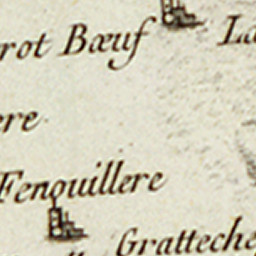 rot Bœuf
La
ere
Fenouillere
Gratteche